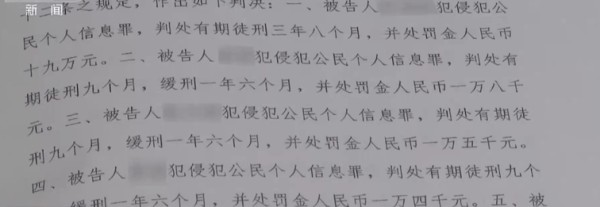 新闻
十二条之规定，作出如下判决：一、被告人 犯侵犯公
民个人信息罪，判处有期徒刑三年八个月，并处罚金人民币
十九万元。二、被告人 犯侵犯公民个人信息罪，判处有
期徒刑九个月，缓刑一年六个月，并处罚金人民币一万八千
元。三、被告人 犯侵犯公民个人信息罪，判处有期徒
刑九个月，缓刑一年六个月，并处罚金人民币一万五千元。
四、被告人 犯侵犯公民个人信息罪，判处有期徒刑九个
一年六个月，并处罚金人民币一万四千元。五、被